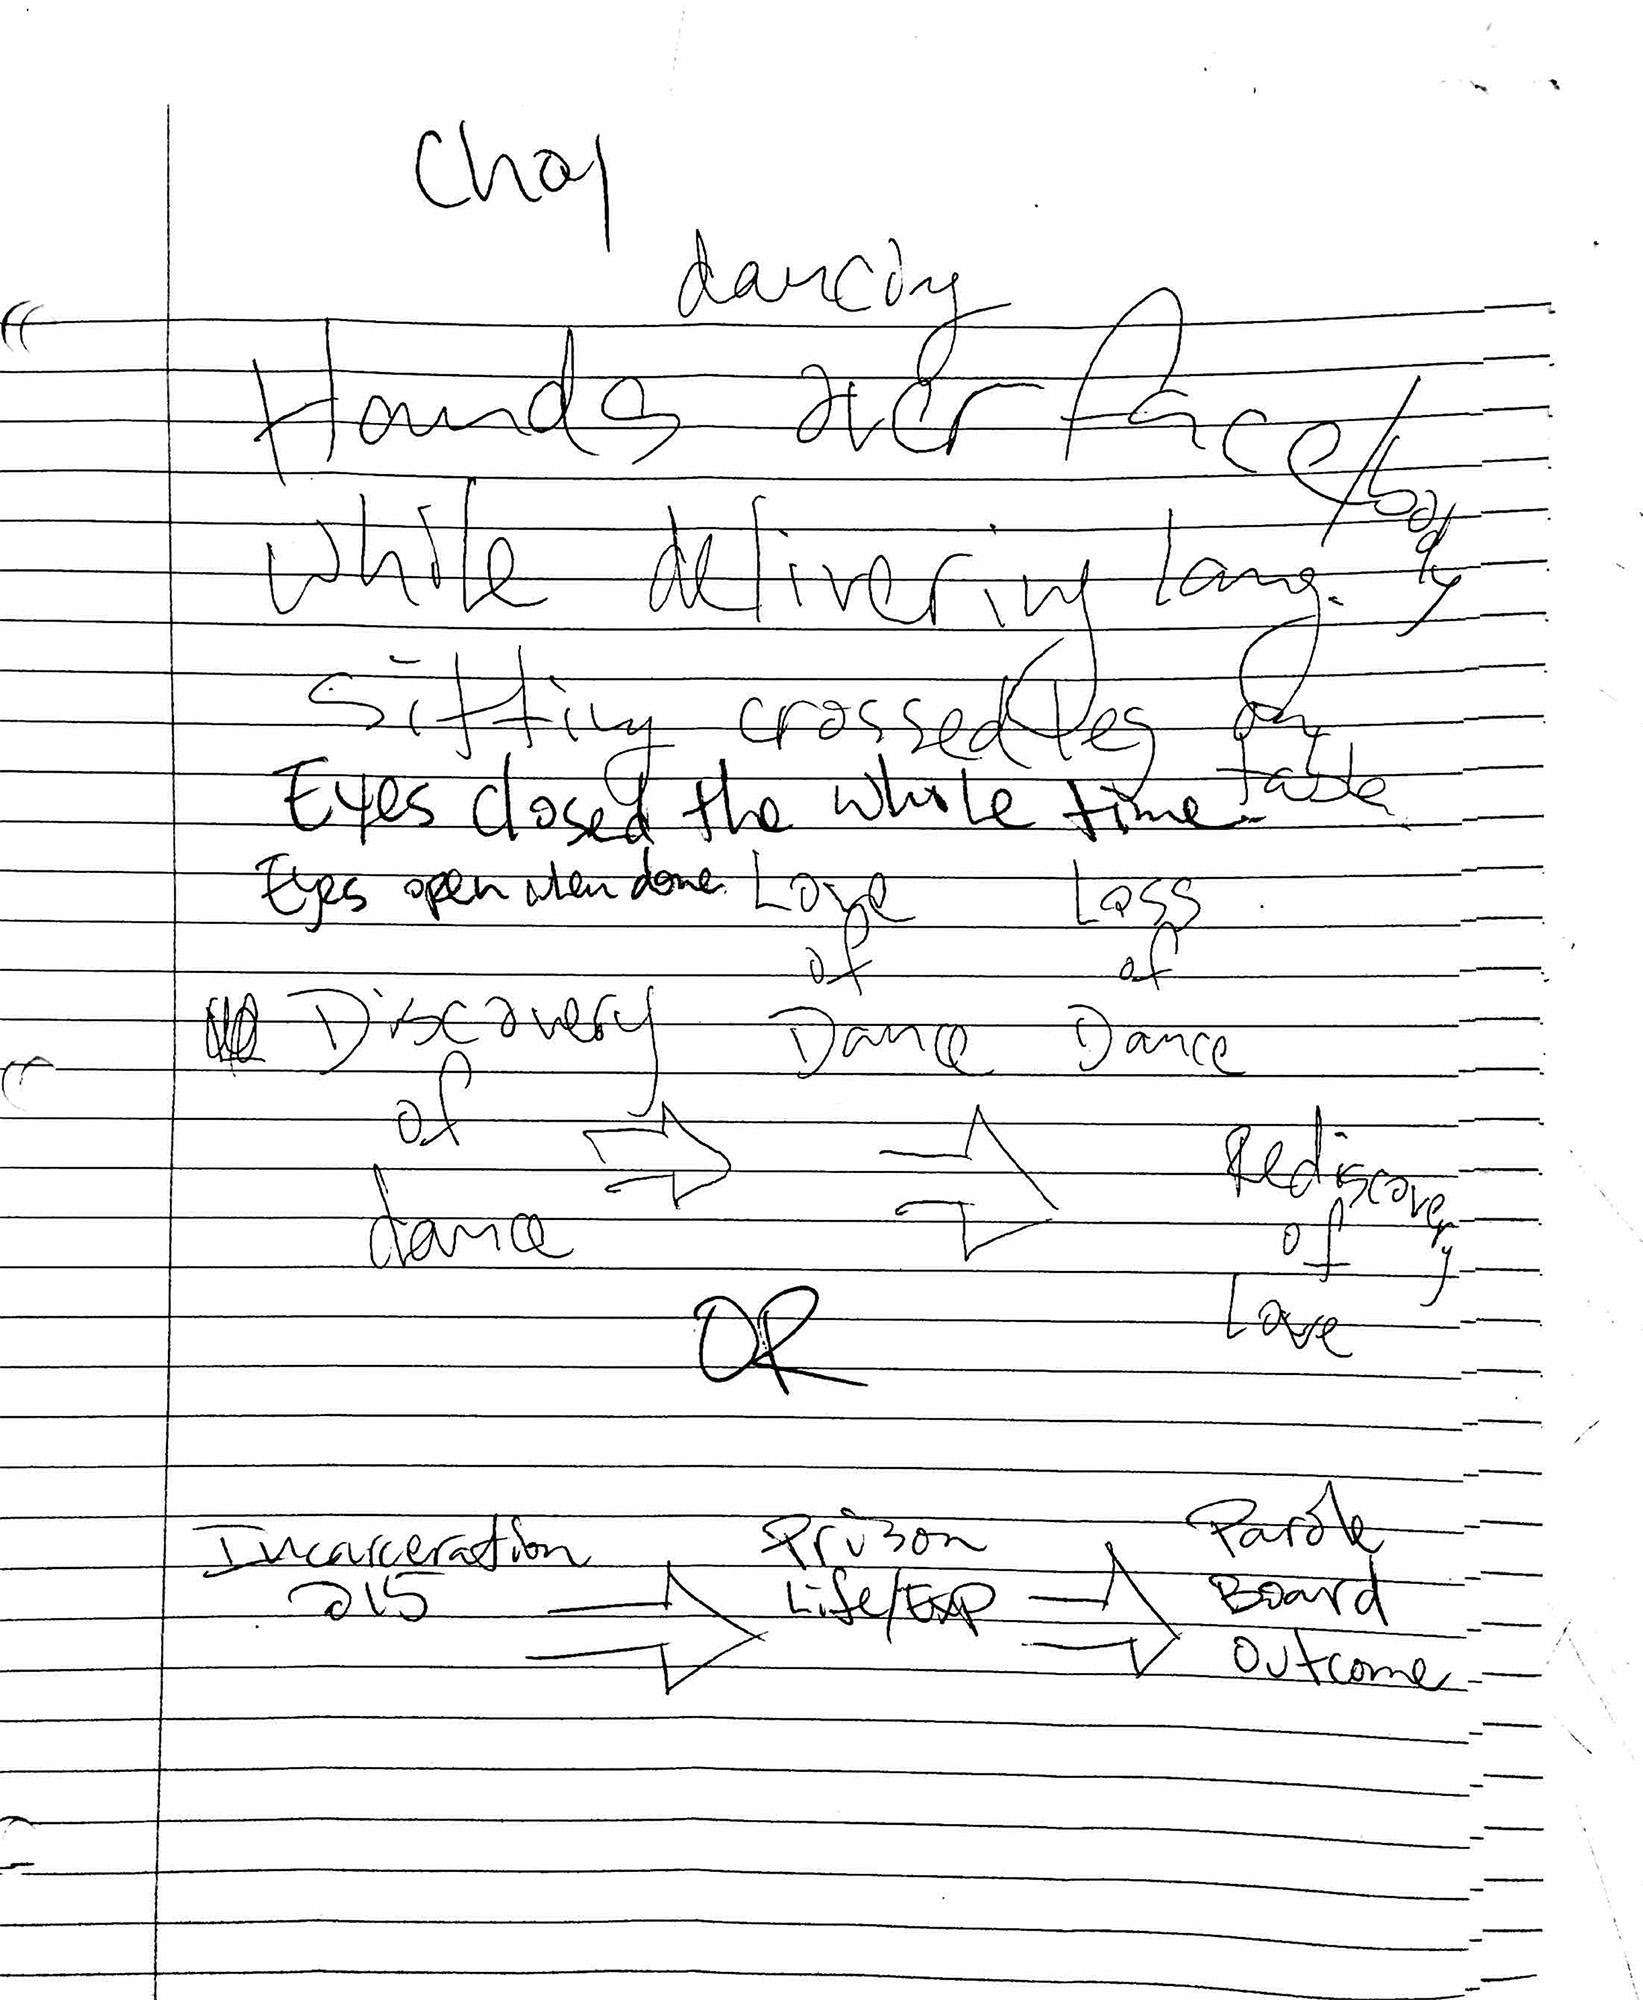 Choy
dancing
Hands over face/body
while delivering lang.
sitting crossed leg on
table
Eyes closed the whole time.
Eyes open when done.
Love Loss
of of
Discovery Dance Dance
of
dance
Rediscovery
of
Love
OR
Incarceration Prison Parole
215 Life/Exp Board
Outcome